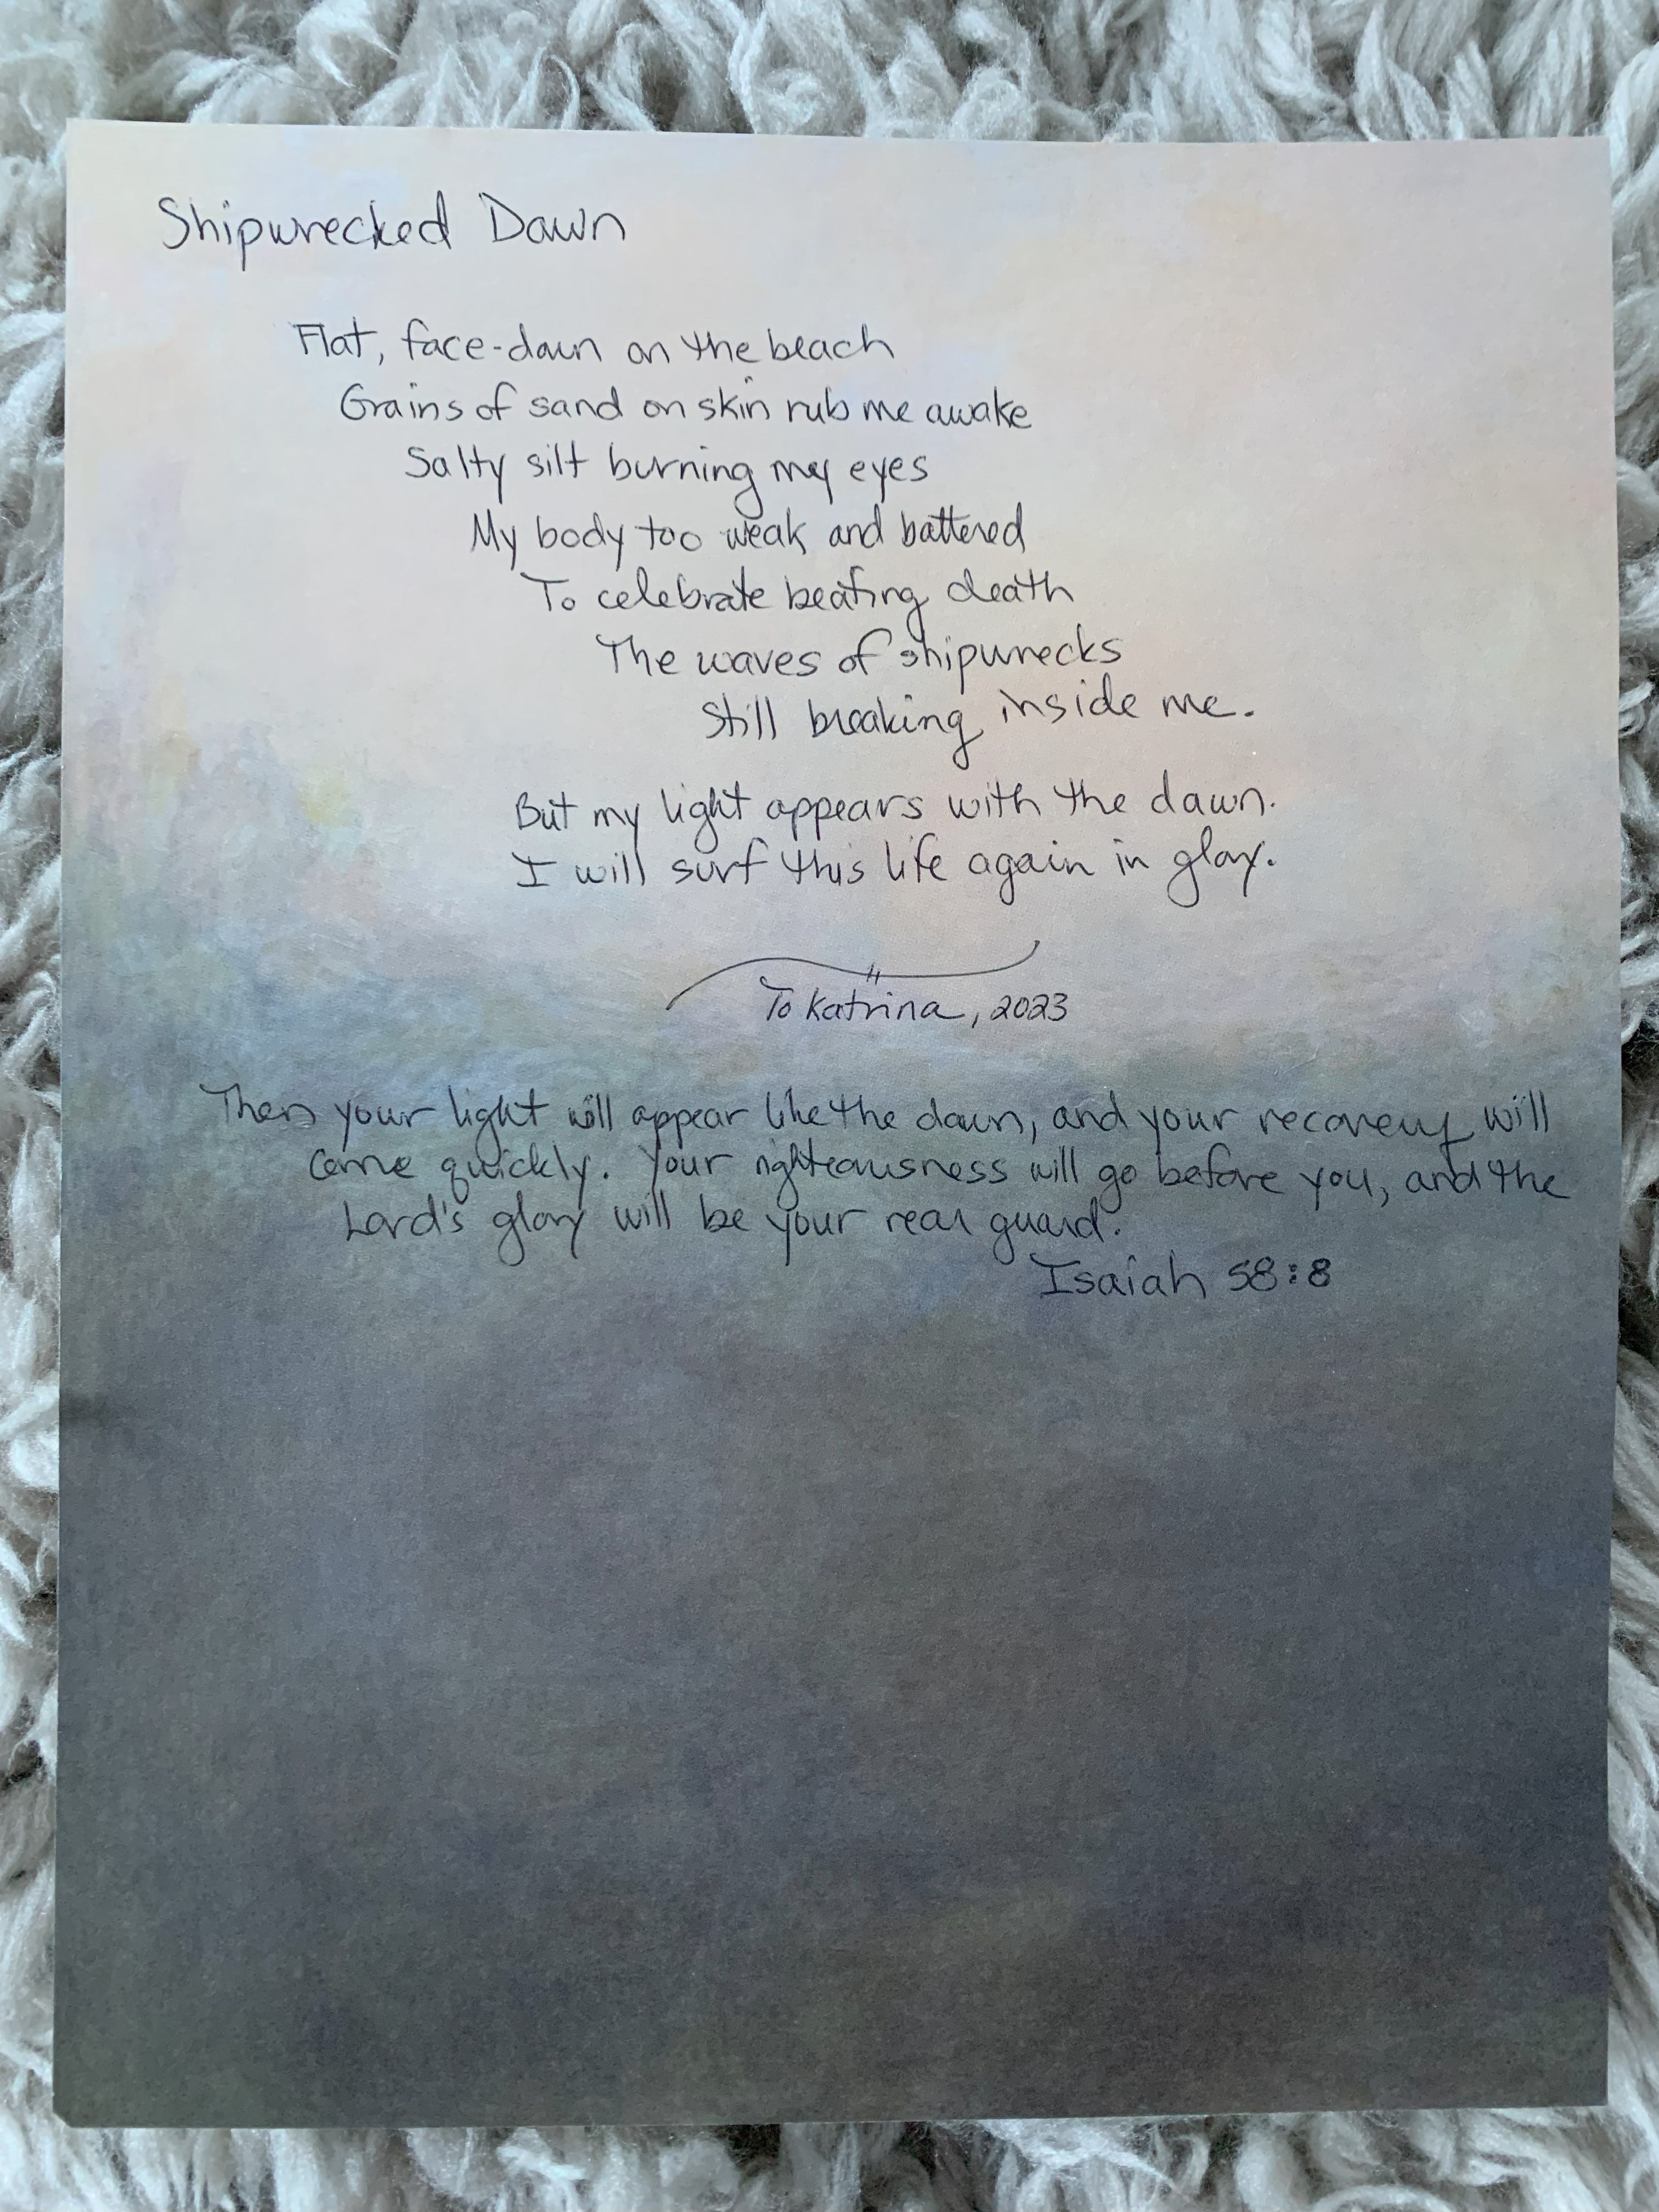 Shipwrecked Dawn
Flat, face-down on the beach
Grains of sand on skin rub me awake
Salty silt burning my eyes
My body too weak and battered
To celebrate beating death
The waves of shipwrecks
Still breaking inside me.
But my light appears with the dawn.
I will surf this life again in glory.
To Katrina, 2023
Then your light will appear like the dawn, and your recovery will
come quickly. Your righteousness will go before you, and the
Lord's glory will be your rear guard.
Isaiah 58:8